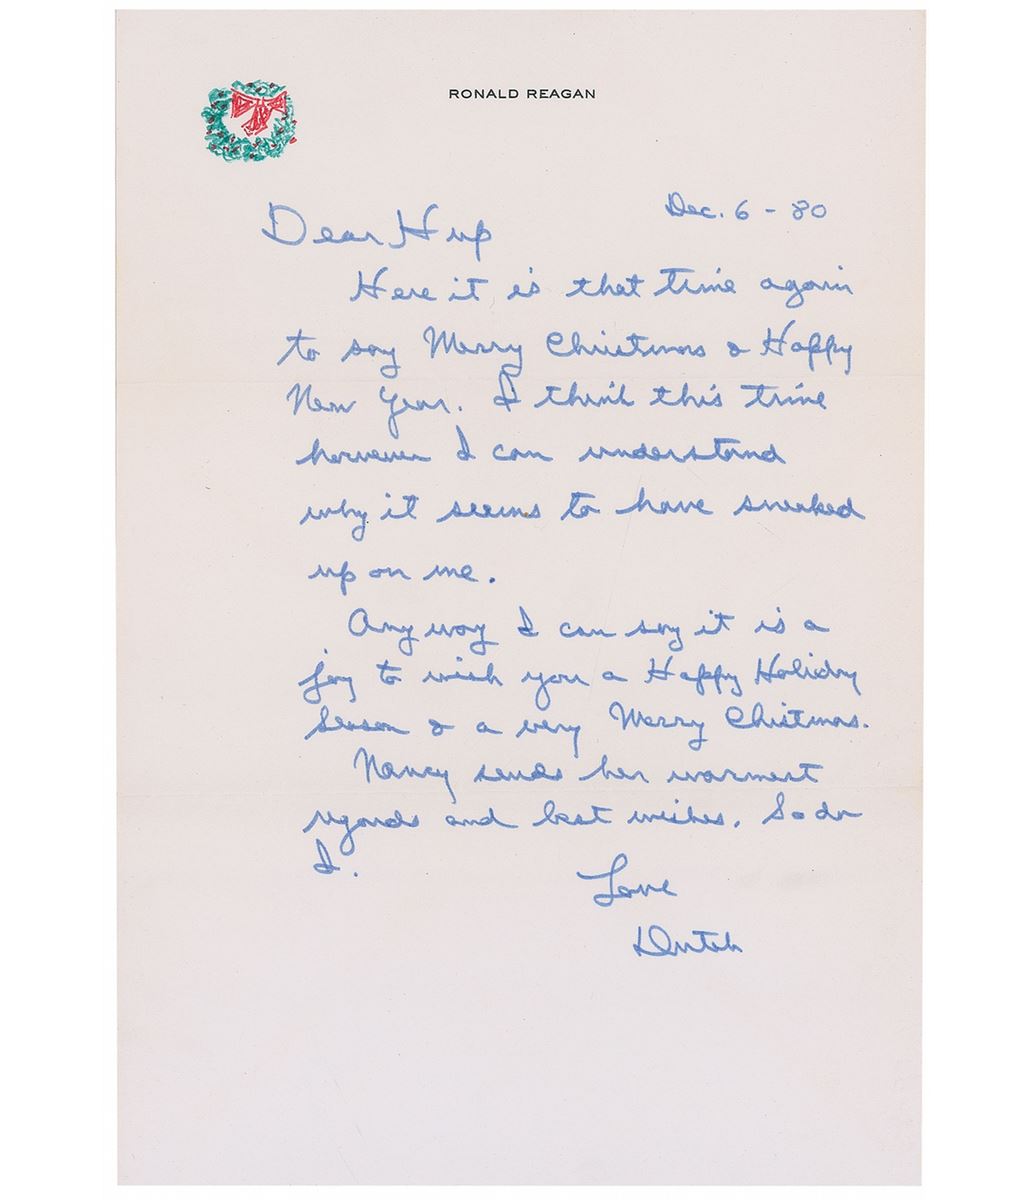 RONALD REAGAN
Dec. 6 - 80
Dear Hup
Here it is that time again
to say Merry Christmas & Happy
New Year. I think this time
however I can understand
why it seems to have sneaked
up on me.
Any way I can say it is a
joy to wish you a Happy Holiday
Season & a very Merry Christmas.
Nancy sends her warmest
regards and best wishes. So do
I.
Love
Dutch